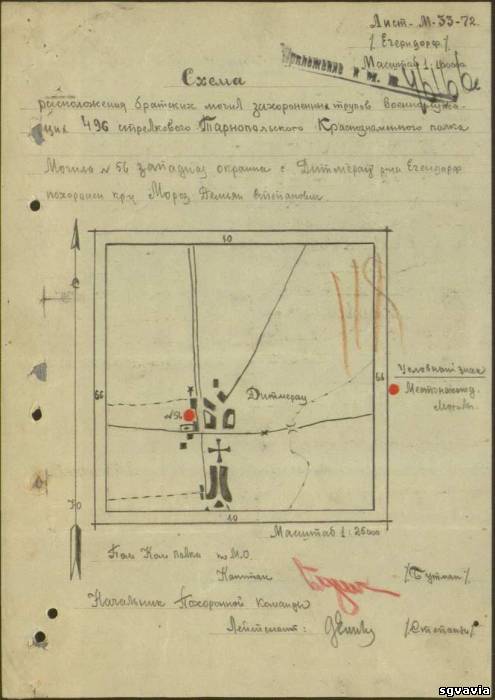 Лист-М-33-72.
/Егерндорф/
Масштаб 1:
Приложение к
Схема
расположения братских могил захоронения трупов военнослужа-
щих 496 стрелкового Тарнопольского Краснознаменного полка
Могила №56 западная окраина с. Дитмерау р-на Егендорф
похоронен кр-ц Мороз Демьян Степанович
10
С
66
66
Дитмерау
№56
Условный знак
Местонахожд.
могилы.
Ю
10
Масштаб 1:25000
Пом Ком полка по М.О.
Капитан /Бутман/
Начальник Похоронной Команды
Лейтенант: /Степанов/
sgvavia